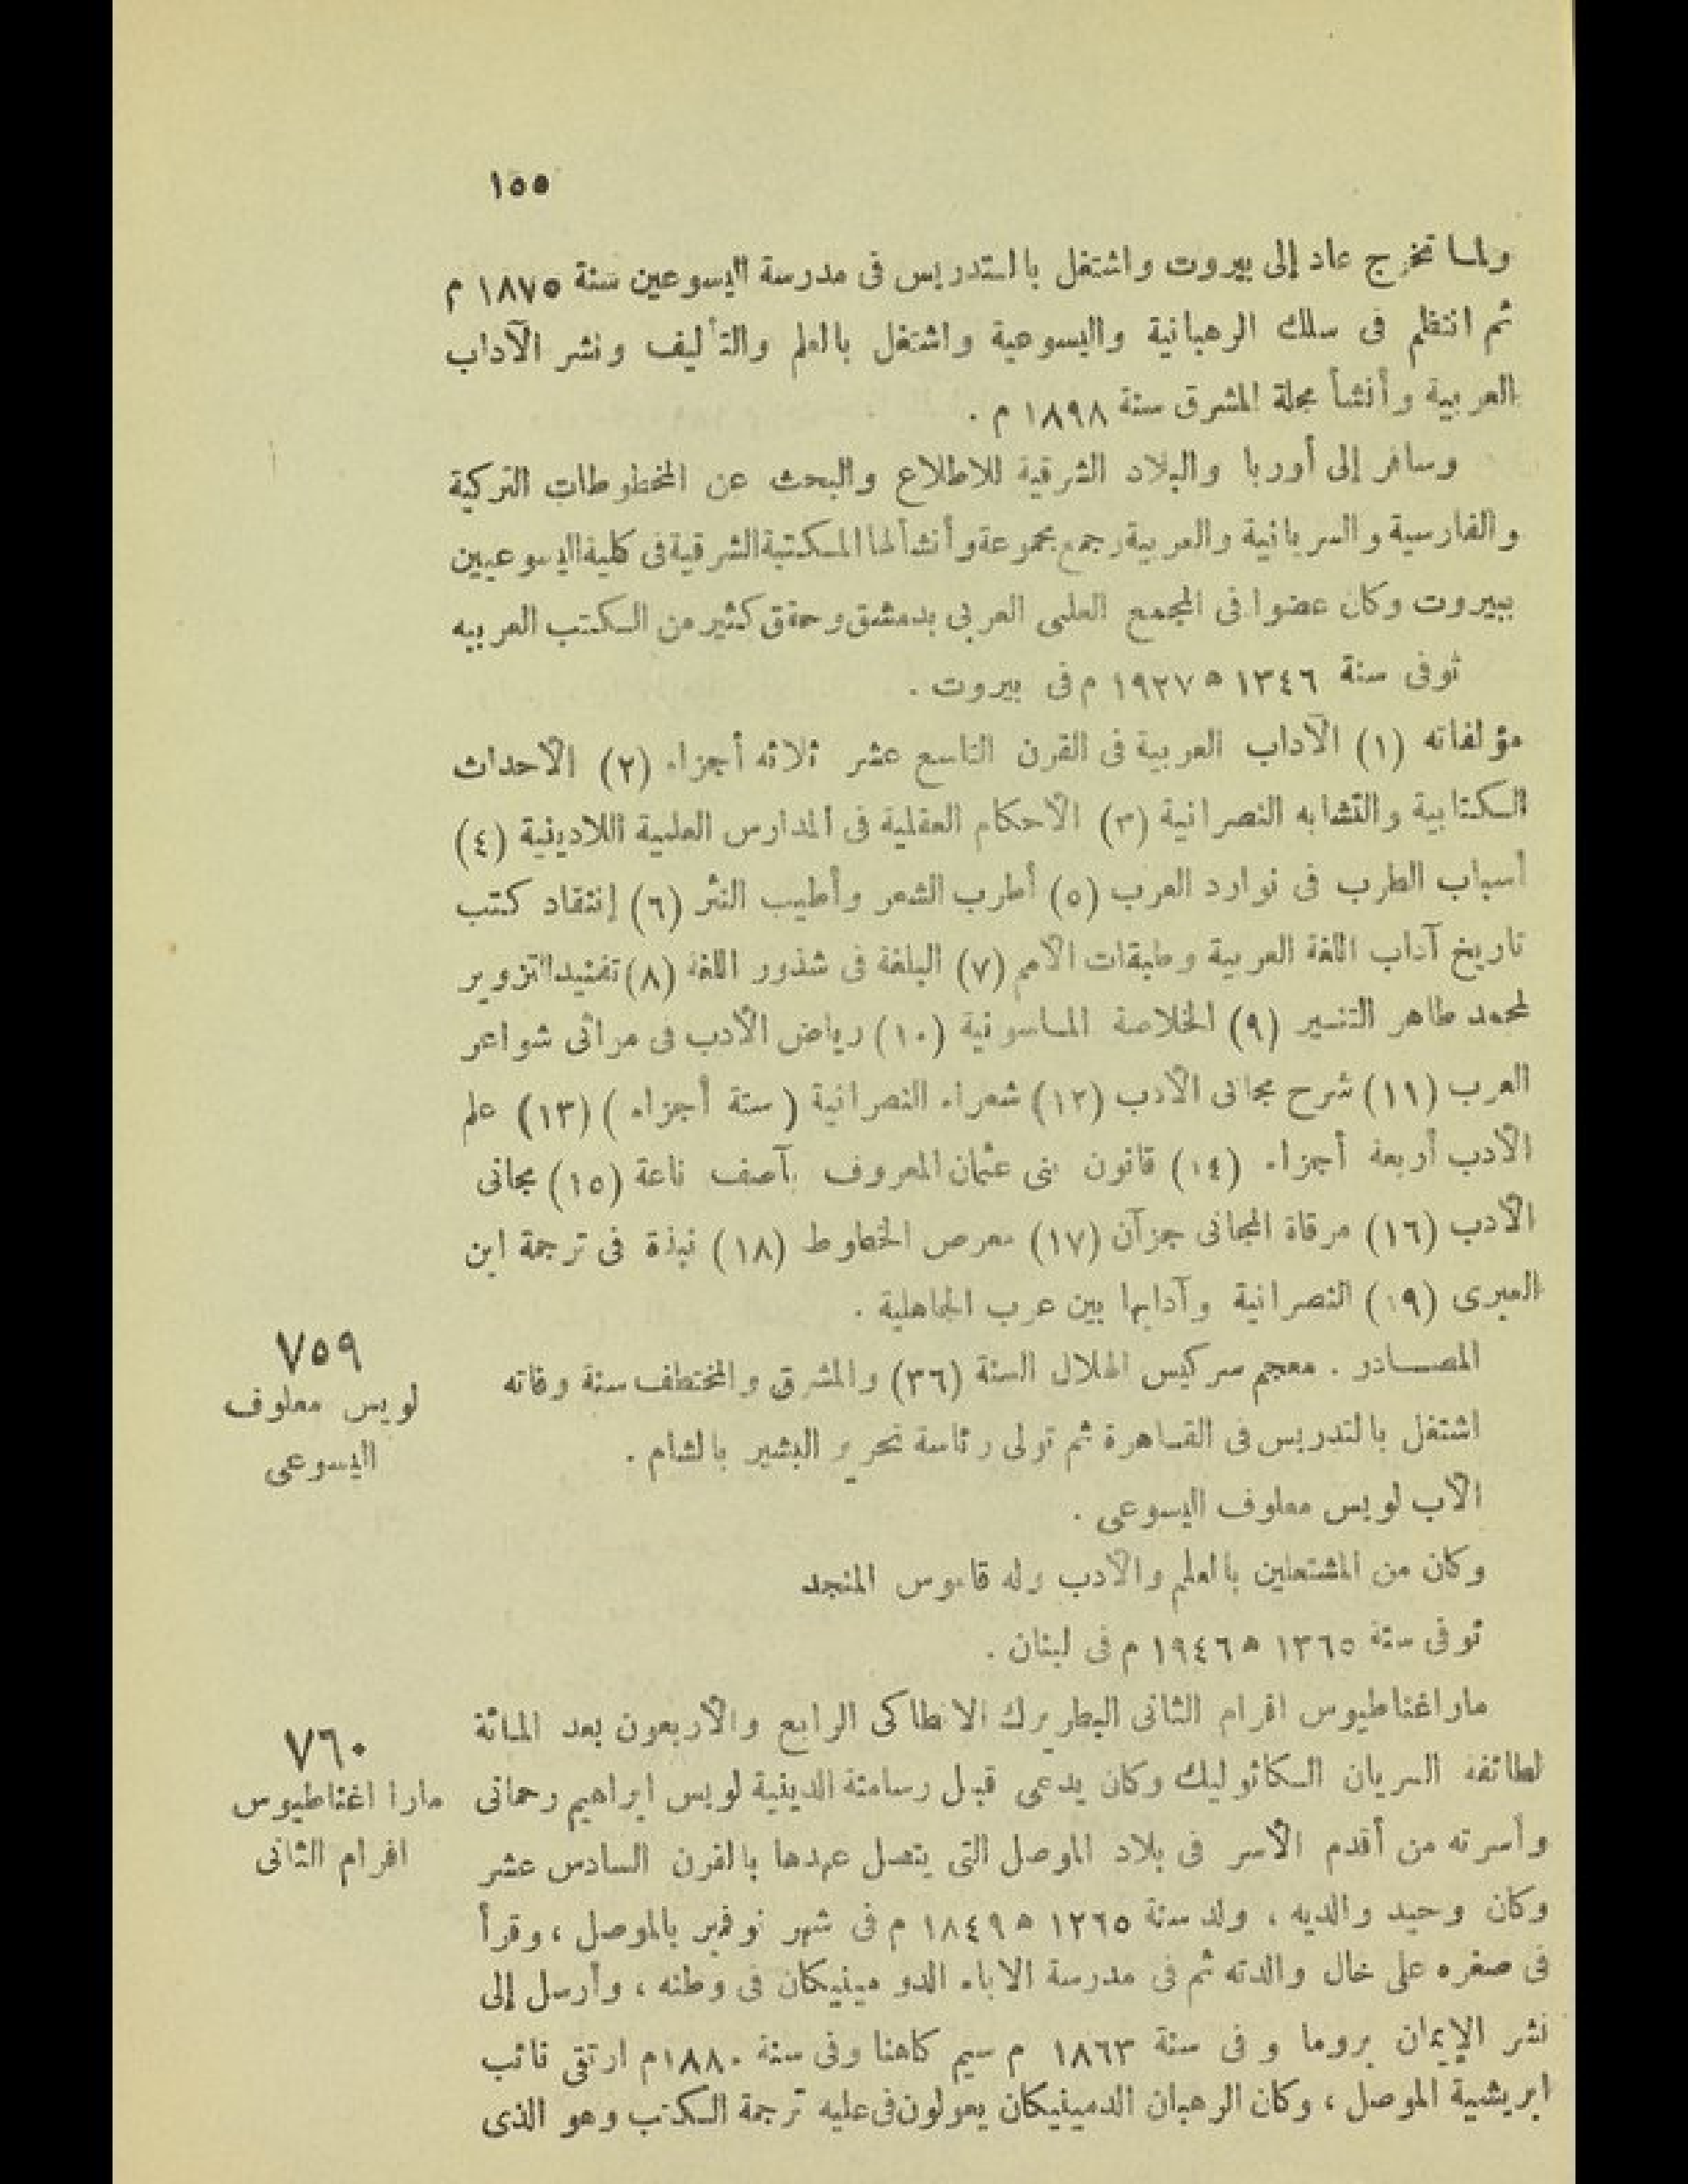 ١٥٥
ولما تخرج عاد إلى بيروت واشتغل بالتدريس فى مدرسة اليسوعين سنة ١٨٧٥ م
ثم انتظم فى سلك الرهبانية واليسوعية واشتغل بالعلم والتأليف ونشر الآداب
العربية وأنشأ مجلة المشرق سنة ١٨٩٨ م .
وسافر إلى أوربا والبلاد الشرقية للاطلاع والبحث عن المخطوطات التركية
والفارسية والسريانية والعربية وجمع مجموعة وأنشأ لها المكتبة الشرقية فى كلية اليسوعيين
ببيروت وكان عضوا فى المجمع العلمى العربى بدمشق وحقق كثير من الكتب العربيه
توفى سنة ١٣٤٦ ه ١٩٢٧ م فى بيروت .
مؤلفاته (١) الآداب العربية فى القرن التاسع عشر ثلاثه أجزاء (٢) الأحداث
الكتابية والتشابه النصرانية (٣) الأحكام العقلية فى المدارس العلمية اللادينية (٤)
أسباب الطرب فى نوارد العرب (٥) أطرب الشعر وأطيب النثر (٦) إنتقاد كتب
تاريخ آداب اللغة العربية وطبقات الأمم (٧) البلغة فى شذور اللغة (٨) تفنيد التزوير
لمحمد طاهر التنسير (٩) الخلاصة الماسونية (١٠) رياض الأدب فى مراثى شواعر
العرب (١١) شرح مجانى الأدب (١٢) شعراء النصرانية (ستة أجزاء) (١٣) علم
الأدب أربعة أجزاء (١٤) قانون بنى عثمان المعروف بآصف ناعة (١٥) مجانى
الأدب (١٦) مرقاة المجانى جزآن (١٧) معرص الخطوط (١٨) نبذة فى ترجمة ابن
العبرى (١٩) النصرانية وآدابها بين عرب الجاهلية .
المصادر . معجم سركيس الهلال السنة (٣٦) والمشرق والمختطف سنة وفاته
٧٥٩
لويس معلوف
اليسوعى
اشتغل بالتدريس فى القاهرة ثم تولى رئاسة تحرير البشير بالشام .
الأب لويس معلوف اليسوعى .
وكان من المشتغلين بالعلم والأدب وله قاموس المنجد
توفى سنة ١٣٦٥ ه ١٩٤٦ م فى لبنان .
٧٦٠
مارا اغناطيوس
افرام الثانى
ماراغناطيوس افرام الثانى البطريرك الانطاكى الرابع والأربعون بعد المائة
لطائفة السريان الكاثوليك وكان يدعى قبل رسامتة الدينية لويس ابراهيم رحمانى
وأسرته من أقدم الأسر فى بلاد الموصل التى يتصل عهدها بالقرن السادس عشر
وكان وحيد والديه ، ولد سنة ١٢٦٥ ه ١٨٤٩ م فى شهر نوفمبر بالموصل ، وقرأ
فى صغره على خال والدته ثم فى مدرسة الاباء الدومينيكان فى وطنه ، وأرسل إلى
نشر الإيمان بروما و فى سنة ١٨٦٣ م سيم كاهنا وفى سنة ١٨٨٠م ارتقى نائب
ابريشية الموصل ، وكان الرهبان الدمينيكان يعولون فى عليه ترجمة الكتب وهو الذى